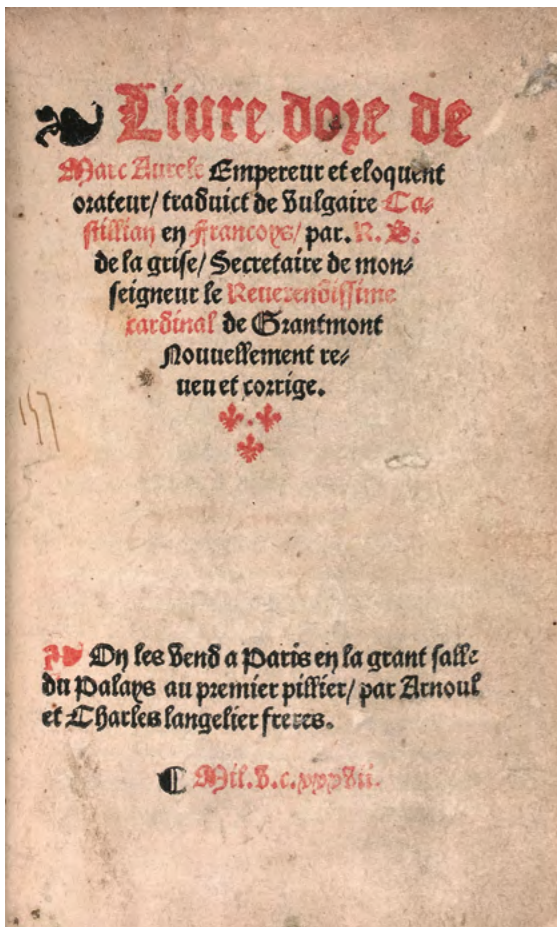 Liure dore de
Marc Aurele Empereur et eloquent
orateur/ traduict de vulgaire Ca⸗
stillian en francoys/ par. R. B.
de la grise/ Secretaire de mon⸗
seigneur le Reuerendissime
cardinal de Grantmont
Nouuellement re⸗
ueu et corrige.
On les vend a Paris en la grant salle
du Palays au premier pillier/ par Arnoul
et Charles langelier freres.
Mil. v. c. xxxvii.